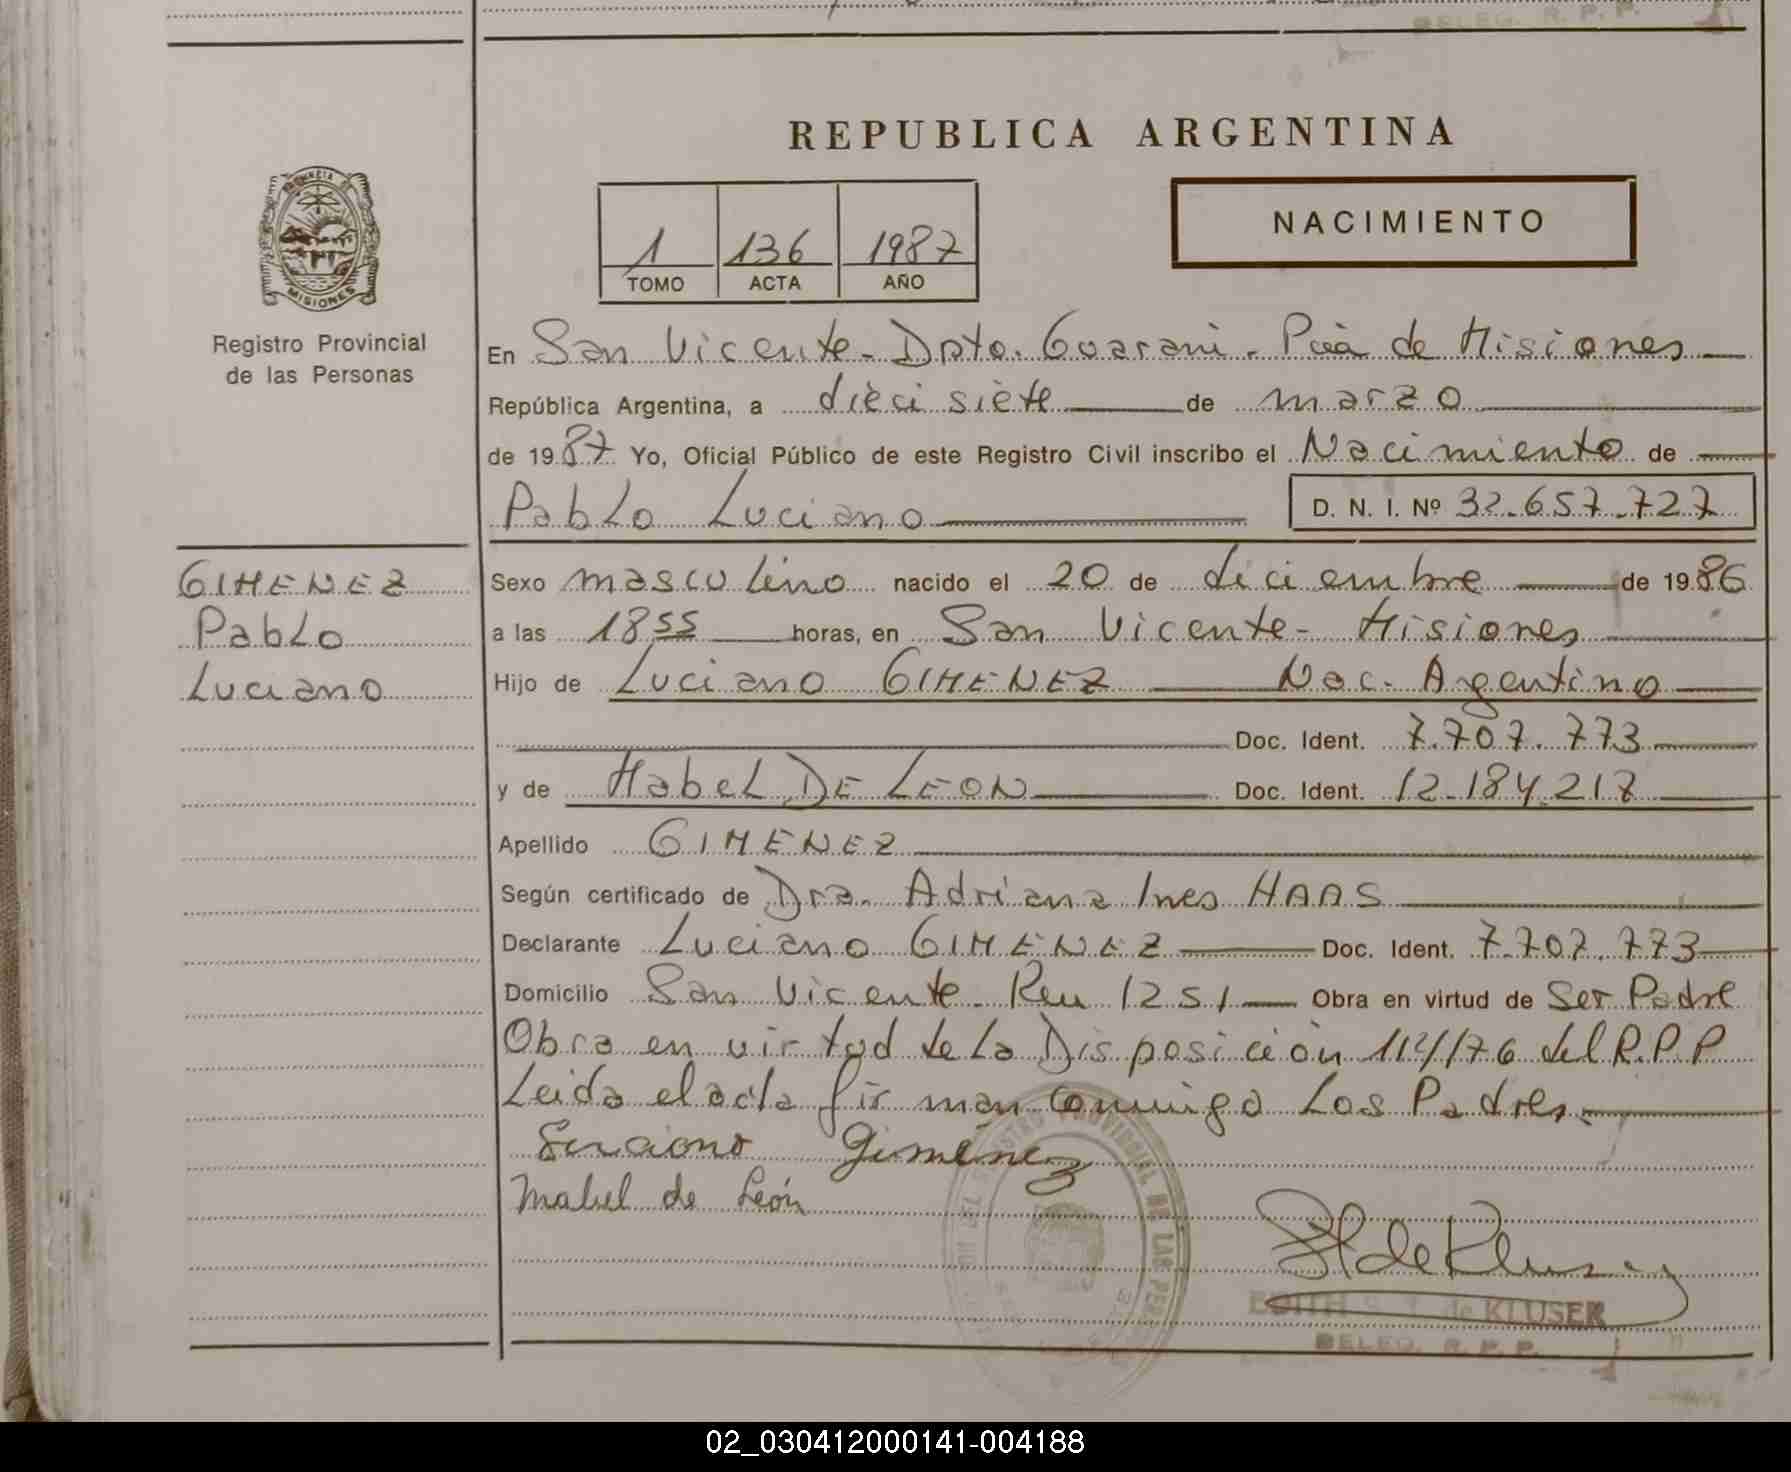 DELEG. R. P. P.
REPUBLICA ARGENTINA
NACIMIENTO
1 136 1987
TOMO ACTA AÑO
PROVINCIA DE
MISIONES
Registro Provincial
de las Personas
En San Vicente - Dpto. Guarani - Pcia de Misiones
República Argentina, a dieci siete de marzo
de 1987 Yo, Oficial Público de este Registro Civil inscribo el Nacimiento de
Pablo Luciano D. N. I. Nº 32.657.727
GIMENEZ
Pablo
Luciano
Sexo masculino nacido el 20 de diciembre de 1986
a las 18 55 horas, en San Vicente - Misiones
Hijo de Luciano GIMENEZ Nac. Argentino
Doc. Ident. 7.707.773
y de Mabel DE LEON Doc. Ident. 12.184.217
Apellido GIMENEZ
Según certificado de Dra. Adriana Ines HAAS
Declarante Luciano GIMENEZ Doc. Ident. 7.707.773
Domicilio San Vicente - 1251 Obra en virtud de Ser Padre
Obra en virtud de la Disposición 114/76 del R.P.P
Leida el acta firman conmigo los Padres.
Luciano Gimenez
Mabel de León
de Kluser
EDITH de KLUSER
DELEG. R. P. P.
02_030412000141-004188